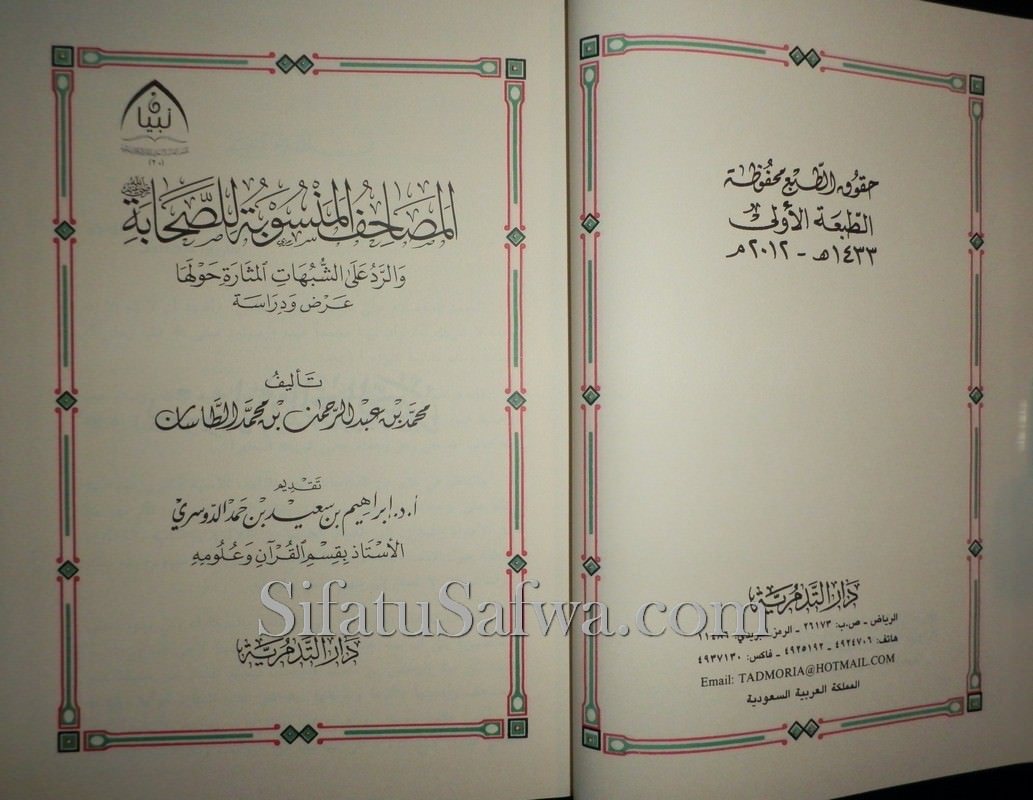 حقوق الطبع محفوظة
الطبعة الأولى
١٤٣٣هـ - ٢٠١٢م
دار التدمرية
الرياض - ص.ب: ٢٦١٧٣ - الرمز البريدي:
هاتف: ٤٩٢٤٧٠٦ - ٤٩٢٥١٩٢ - فاكس: ٤٩٣٧١٣٠
Email: TADMORIA@HOTMAIL.COM
المملكة العربية السعودية
تبيان
(٢٠)
المصاحف المنسوبة للصحابة
والرد على الشبهات المثارة حولها
عرض ودراسة
تأليف
محمد بن عبد الرحمن بن محمد الطاسان
تقديم
أ.د. إبراهيم بن سعيد بن حمد الدوسري
الأستاذ بقسم القرآن وعلومه
دار التدمرية
SifatuSafwa.com